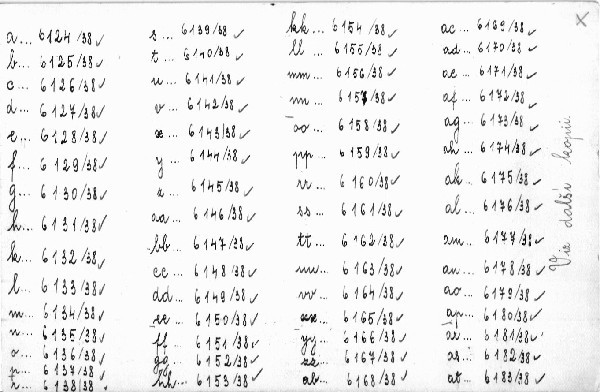 a... 6124/38 ✓
b... 6125/38 ✓
c... 6126/38 ✓
d... 6127/38 ✓
e... 6128/38 ✓
f... 6129/38 ✓
g... 6130/38 ✓
h... 6131/38 ✓
k... 6132/38 ✓
l... 6133/38 ✓
m... 6134/38 ✓
n... 6135/38 ✓
o... 6136/38 ✓
p... 6137/38 ✓
r... 6138/38 ✓
s... 6139/38 ✓
t... 6140/38 ✓
u... 6141/38 ✓
v... 6142/38 ✓
x... 6143/38 ✓
y... 6144/38 ✓
z... 6145/38 ✓
aa... 6146/38 ✓
bb... 6147/38 ✓
cc... 6148/38 ✓
dd... 6149/38 ✓
ee... 6150/38 ✓
ff... 6151/38 ✓
gg... 6152/38 ✓
hh... 6153/38 ✓
kk... 6154/38 ✓
ll... 6155/38 ✓
mm... 6156/38 ✓
nn... 6157/38 ✓
oo... 6158/38 ✓
pp... 6159/38 ✓
rr... 6160/38 ✓
ss... 6161/38 ✓
tt... 6162/38 ✓
uu... 6163/38 ✓
vv... 6164/38 ✓
xx... 6165/38 ✓
yy... 6166/38 ✓
zz... 6167/38 ✓
ab... 6168/38 ✓
ac... 6169/38 ✓
ad... 6170/38 ✓
ae... 6171/38 ✓
af... 6172/38 ✓
ag... 6173/38 ✓
ah... 6174/38 ✓
ak... 6175/38 ✓
al... 6176/38 ✓
am... 6177/38 ✓
an... 6178/38 ✓
ao... 6179/38 ✓
ap... 6180/38 ✓
ar... 6181/38 ✓
as... 6182/38 ✓
at... 6183/38 ✓
x
další kopii